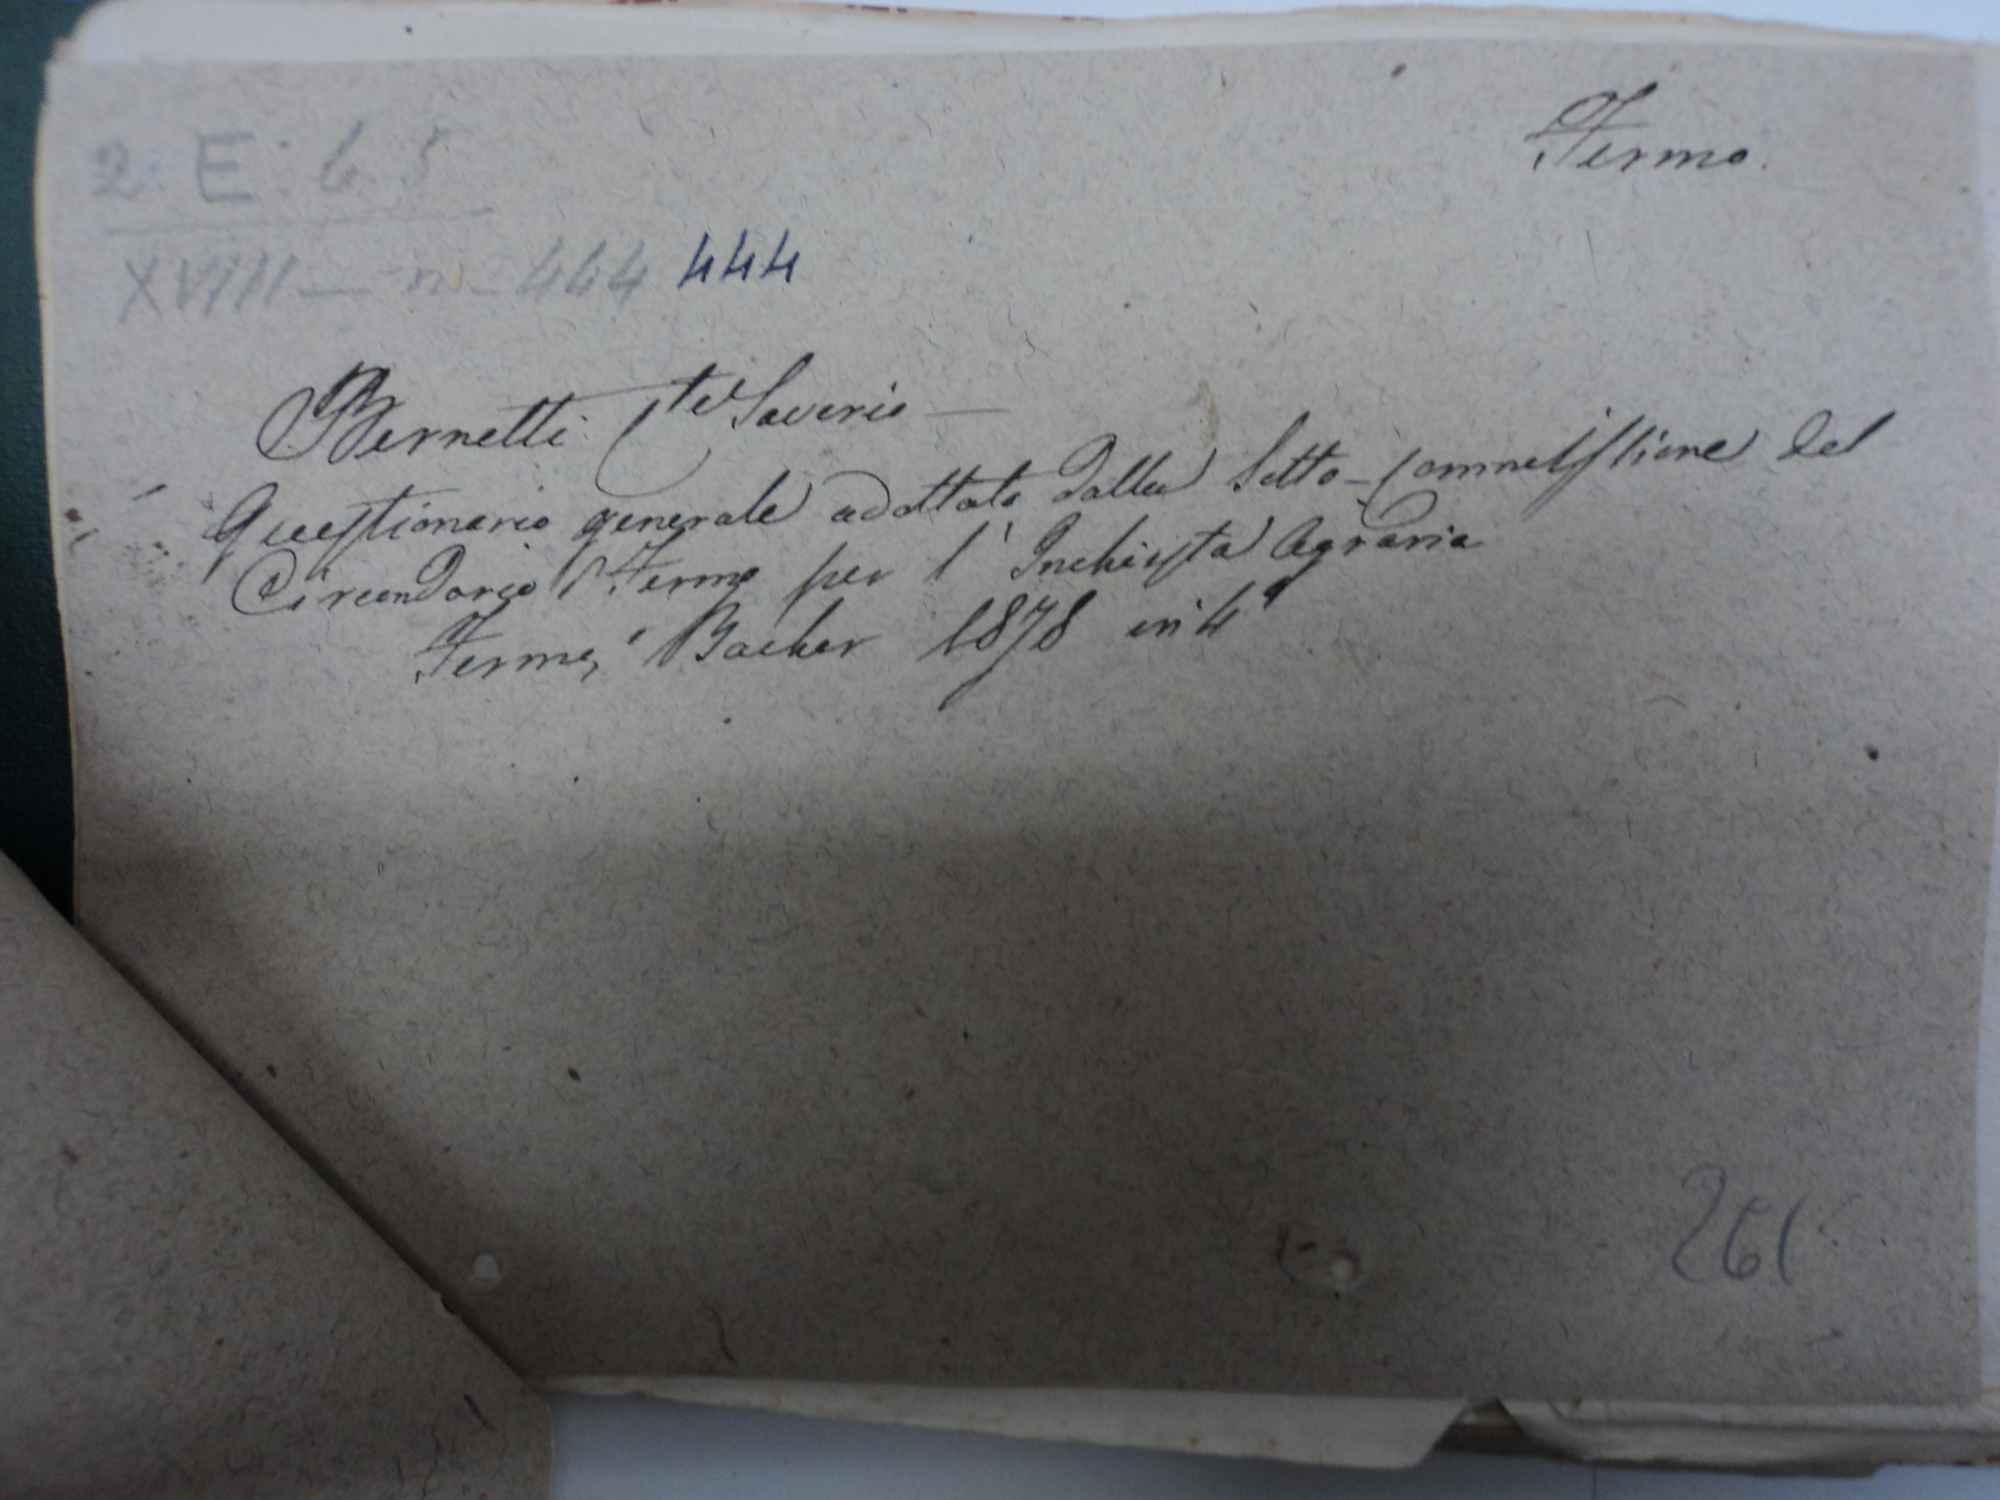 Fermo.
2. E. b. 5
XVIII — n. 444 444
Bernetti Cte Saverio —
Questionario generale adottato dalla Sotto-Commissione del
Circondario Fermo per l'Inchiesta Agraria
Fermo, Bacher 1878 in 4°
261